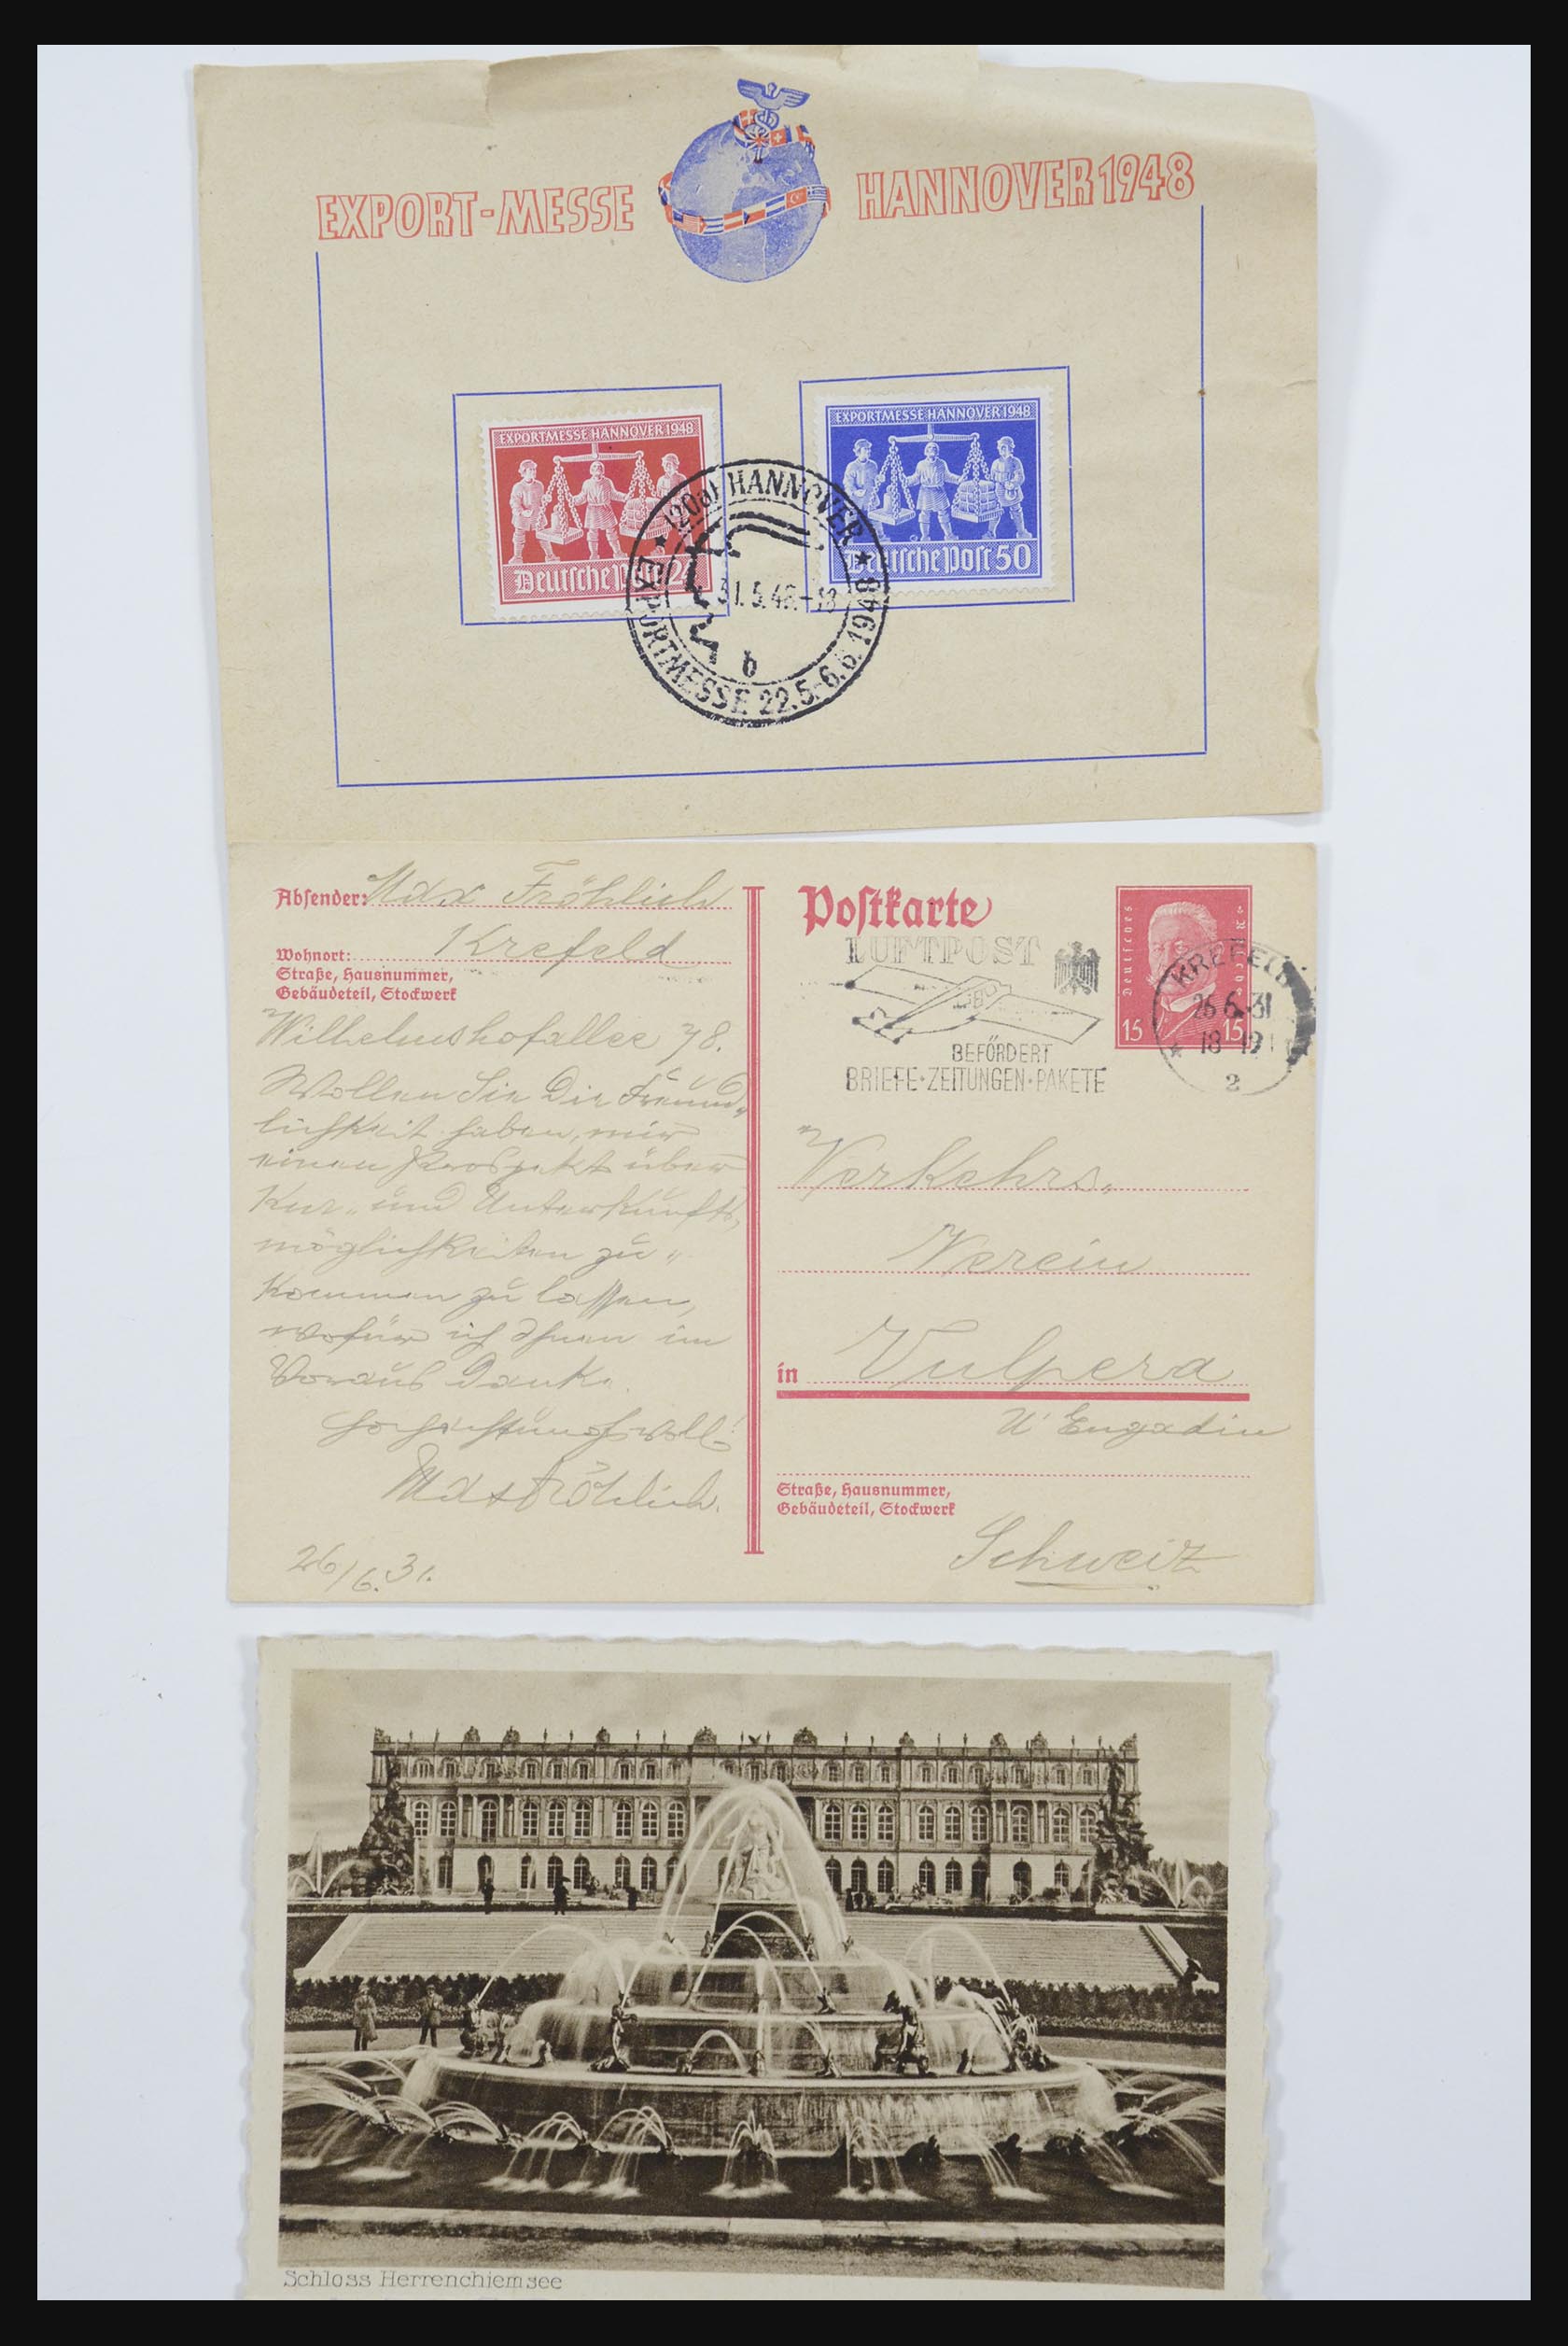 EXPORT-MESSE HANNOVER 1948
EXPORTMESSE HANNOVER 1948
Deutsche Post 24
EXPORTMESSE HANNOVER 1948
Deutsche Post 50
(20a) HANNOVER
31.5.48.-18
b
EXPORTMESSE 22.5.-6.6.1948
Absender: Max Fröhlich
Wohnort: Krefeld
Straße, Hausnummer,
Gebäudeteil, Stockwerk
Wilhelmshofallee 78.
Wollen Sie die Freund„
lichkeit haben, mir
einen Prospekt über
Kur„ und Unterkunfts„
möglichkeiten zu„
kommen zu lassen,
wofür ich Ihnen im
Voraus danke.
Hochachtungsvoll!
Max Fröhlich.
26/6.31.
Postkarte
Deutsches Reich
15 15
LUFTPOST
BEFÖRDERT
BRIEFE·ZEITUNGEN·PAKETE
KREFELD
26.6.31
18-19
2
Verkehrs„
Verein
in Vulpera
U' Engadin
Straße, Hausnummer,
Gebäudeteil, Stockwerk
Schweiz
Schloss Herrenchiemsee